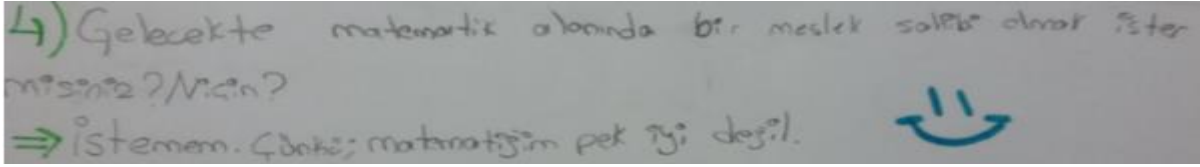 4) Gelecekte matematik alanında bir meslek sahibi olmak ister
misiniz? Niçin?
⇒ istemem. Çünkü; matematiğim pek iyi değil.